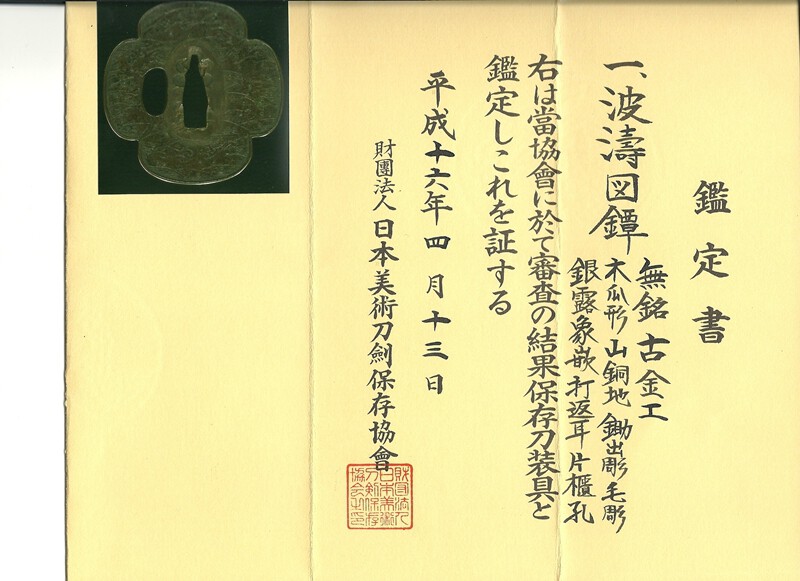 鑑定書
一、波濤図鐔
無銘 古金工
木瓜形 山銅地 鋤出彫 毛彫
銀露象嵌 打返耳 片櫃孔
右は當協會に於て審査の結果保存刀装具と
鑑定しこれを証する
平成十六年四月十三日
財團法人 日本美術刀劍保存協會
財団法人日本美術刀剣保存協会之印